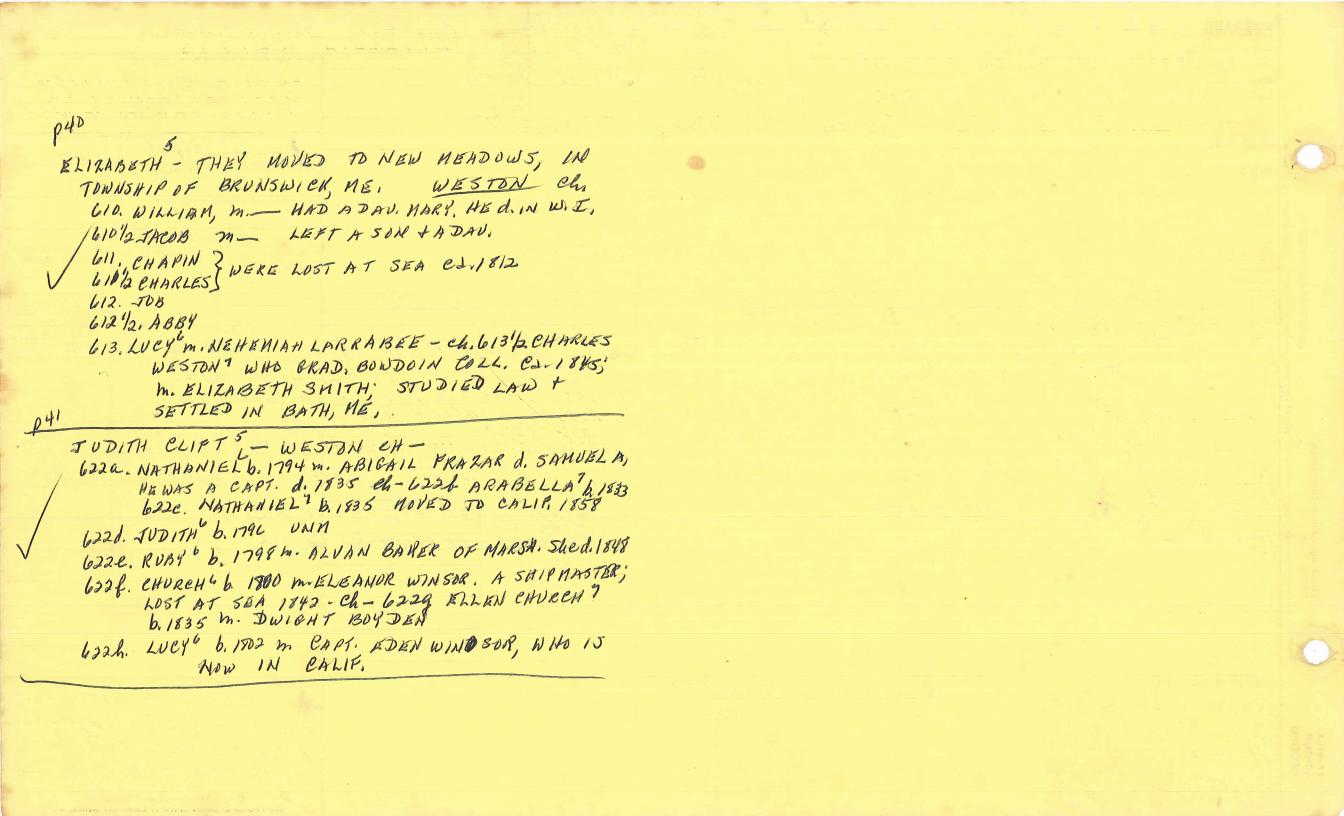 p40
ELIZABETH⁵ - THEY MOVED TO NEW MEADOWS, IN
TOWNSHIP OF BRUNSWICK, ME. WESTON ch
610. WILLIAM, m.— HAD A DAU. MARY. HE d. IN W.I.
610½ JACOB m— LEFT A SON + A DAU.
611. CHAPIN } WERE LOST AT SEA ca. 1812
611½ CHARLES
612. JOB
612½. ABBY
613. LUCY⁶ m. NEHEMIAH LARRABEE - ch. 613½. CHARLES
WESTON⁷ WHO GRAD. BOWDOIN COLL. ca. 1845;
m. ELIZABETH SMITH; STUDIED LAW +
SETTLED IN BATH, ME.
p41
JUDITH CLIFT⁵ — WESTON CH —
622a. NATHANIEL⁶ b. 1794 m. ABIGAIL FRAZAR d. SAMUEL A,
HE WAS A CAPT. d. 1835 ch- 622b ARABELLA⁷ b. 1833
622c. NATHANIEL⁷ b. 1835 MOVED TO CALIF. 1858
622d. JUDITH⁶ b. 1796 UNM
622e. RUBY⁶ b. 1798 m. ALVAN BAKER OF MARSH. She d. 1848
622f. CHURCH⁶ b. 1800 m. ELEANOR WINSOR. A SHIPMASTER;
LOST AT SEA 1842 - ch - 622g ELLEN CHURCH⁷
b. 1835 m. DWIGHT BOYDEN
622h. LUCY⁶ b. 1802 m. CAPT. EDEN WINDSOR, WHO IS
NOW IN CALIF.